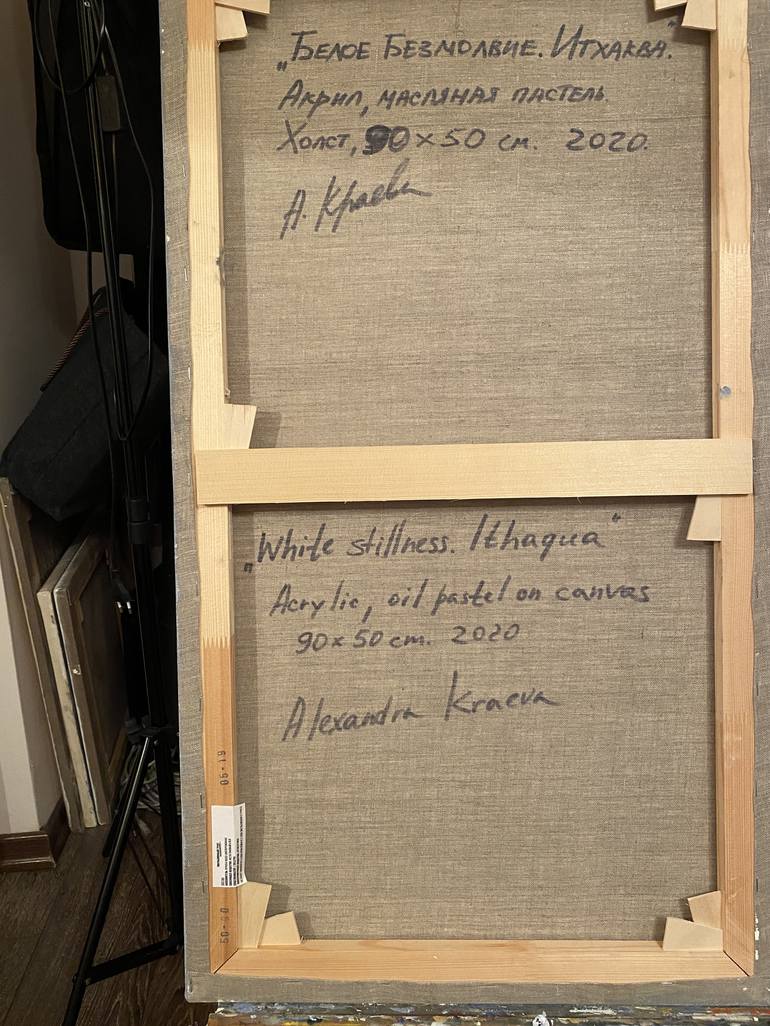 „Белое Безмолвие. Итхаква."
Акрил, масляная пастель.
Холст, 90×50 см. 2020.
А. Краева
„White stillness. Ithaqua"
Acrylic, oil pastel on canvas
90×50 cm. 2020
Alexandra Kraeva
06·19